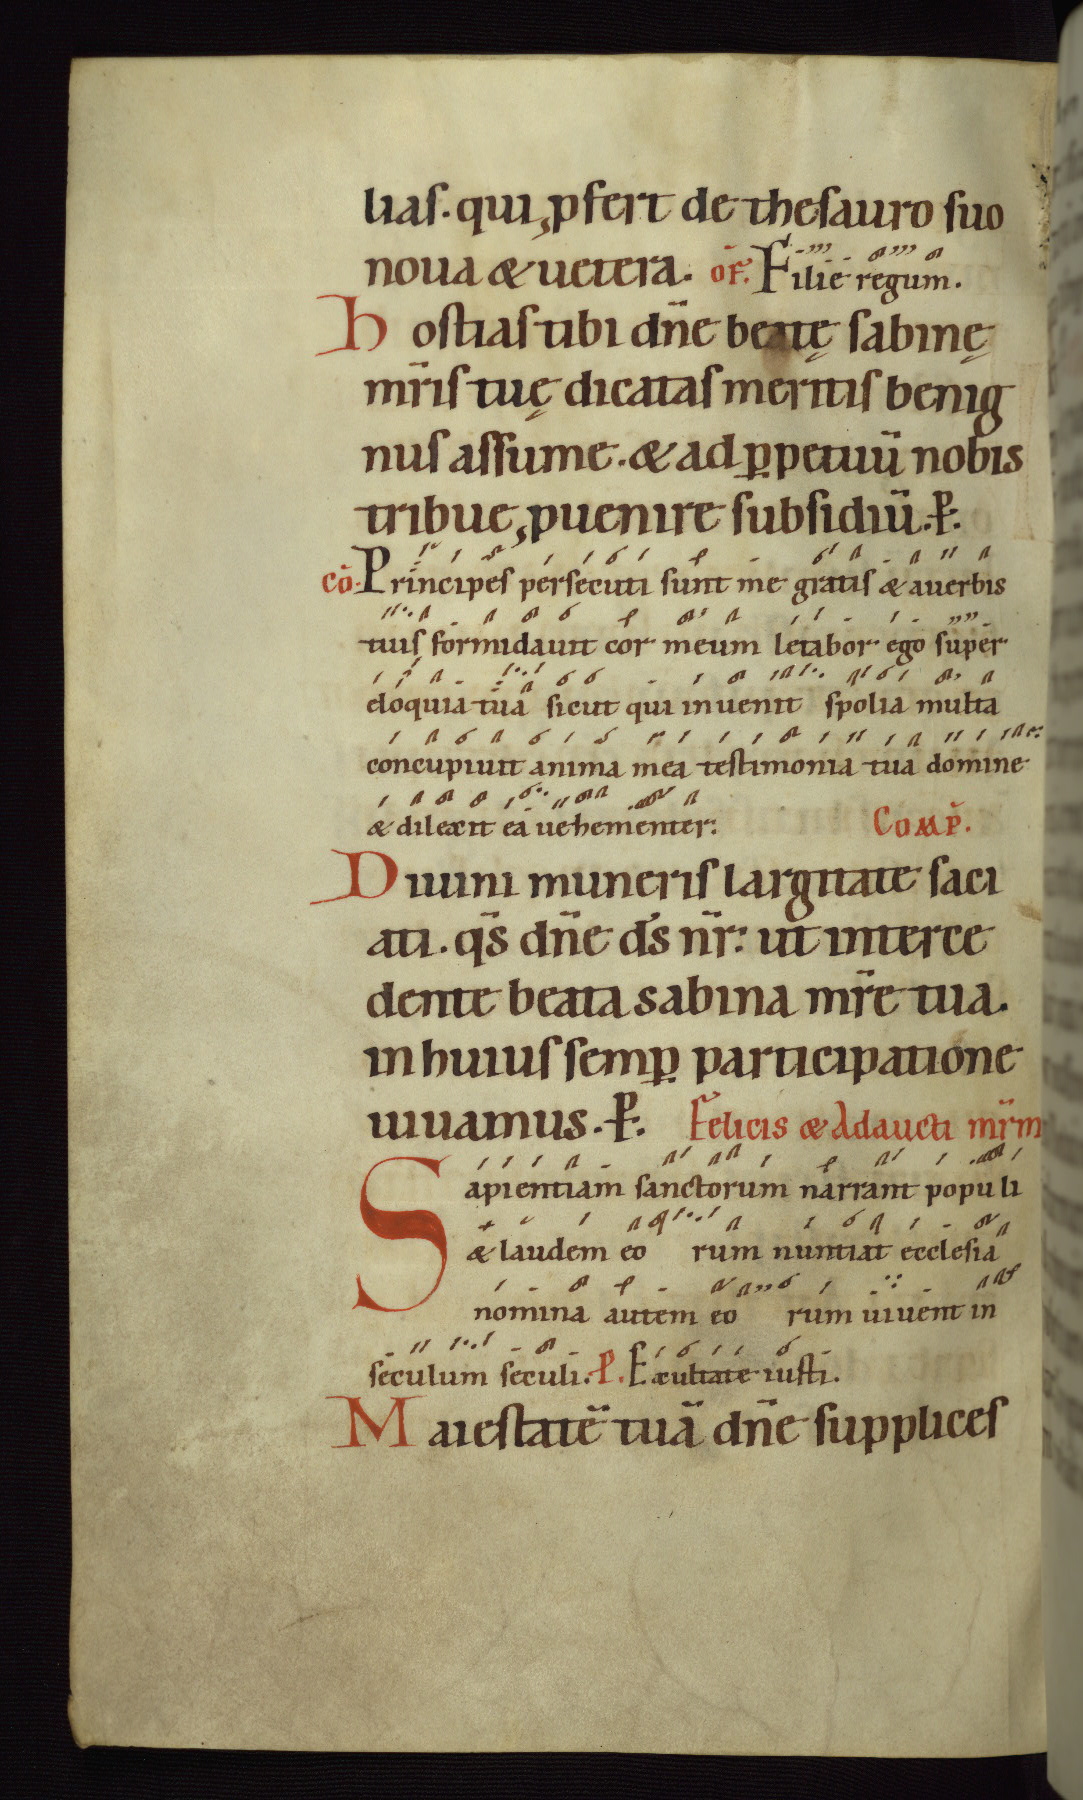 lias. qui ꝓfert de thesauro suo
noua & uetera. of̄. Filie regum.
Hostias tibi dn̄e beatę sabinę
mr̄is tuę dicatas meritis benig
nus assume. & ad ꝑpetuū nobis
tribue ꝓuenire subsidiū. P.
cō. Principes persecuti sunt me gratis & auerbis
tuis formidauit cor meum letabor ego super
eloquia tua sicut qui inuenit spolia multa
concupiuit anima mea testimonia tua domine
& dilexit ea uehementer:
Comp̄.
Diuini muneris largitate saci
ati. qs̄ dn̄e ds̄ nr̄: ut interce
dente beata sabina mr̄e tua.
in huius semꝑ participatione
uiuamus. P. Felicis & Adaucti mr̄m
Sapientiam sanctorum narrant populi
& laudem eorum nuntiat ecclesia
nomina autem eorum uiuent in
seculum seculi. P. Exultate iusti.
Maiestatē tuā dn̄e supplices